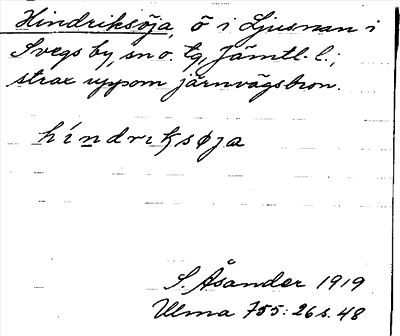 Hindriksöja, ö i Ljusnan i
Svegs by, sn o. tg, Jämtl. l.;
strax uppom järnvägsbron.
híndriksøja
S. Åsander 1919
Ulma 755: 26 s. 48